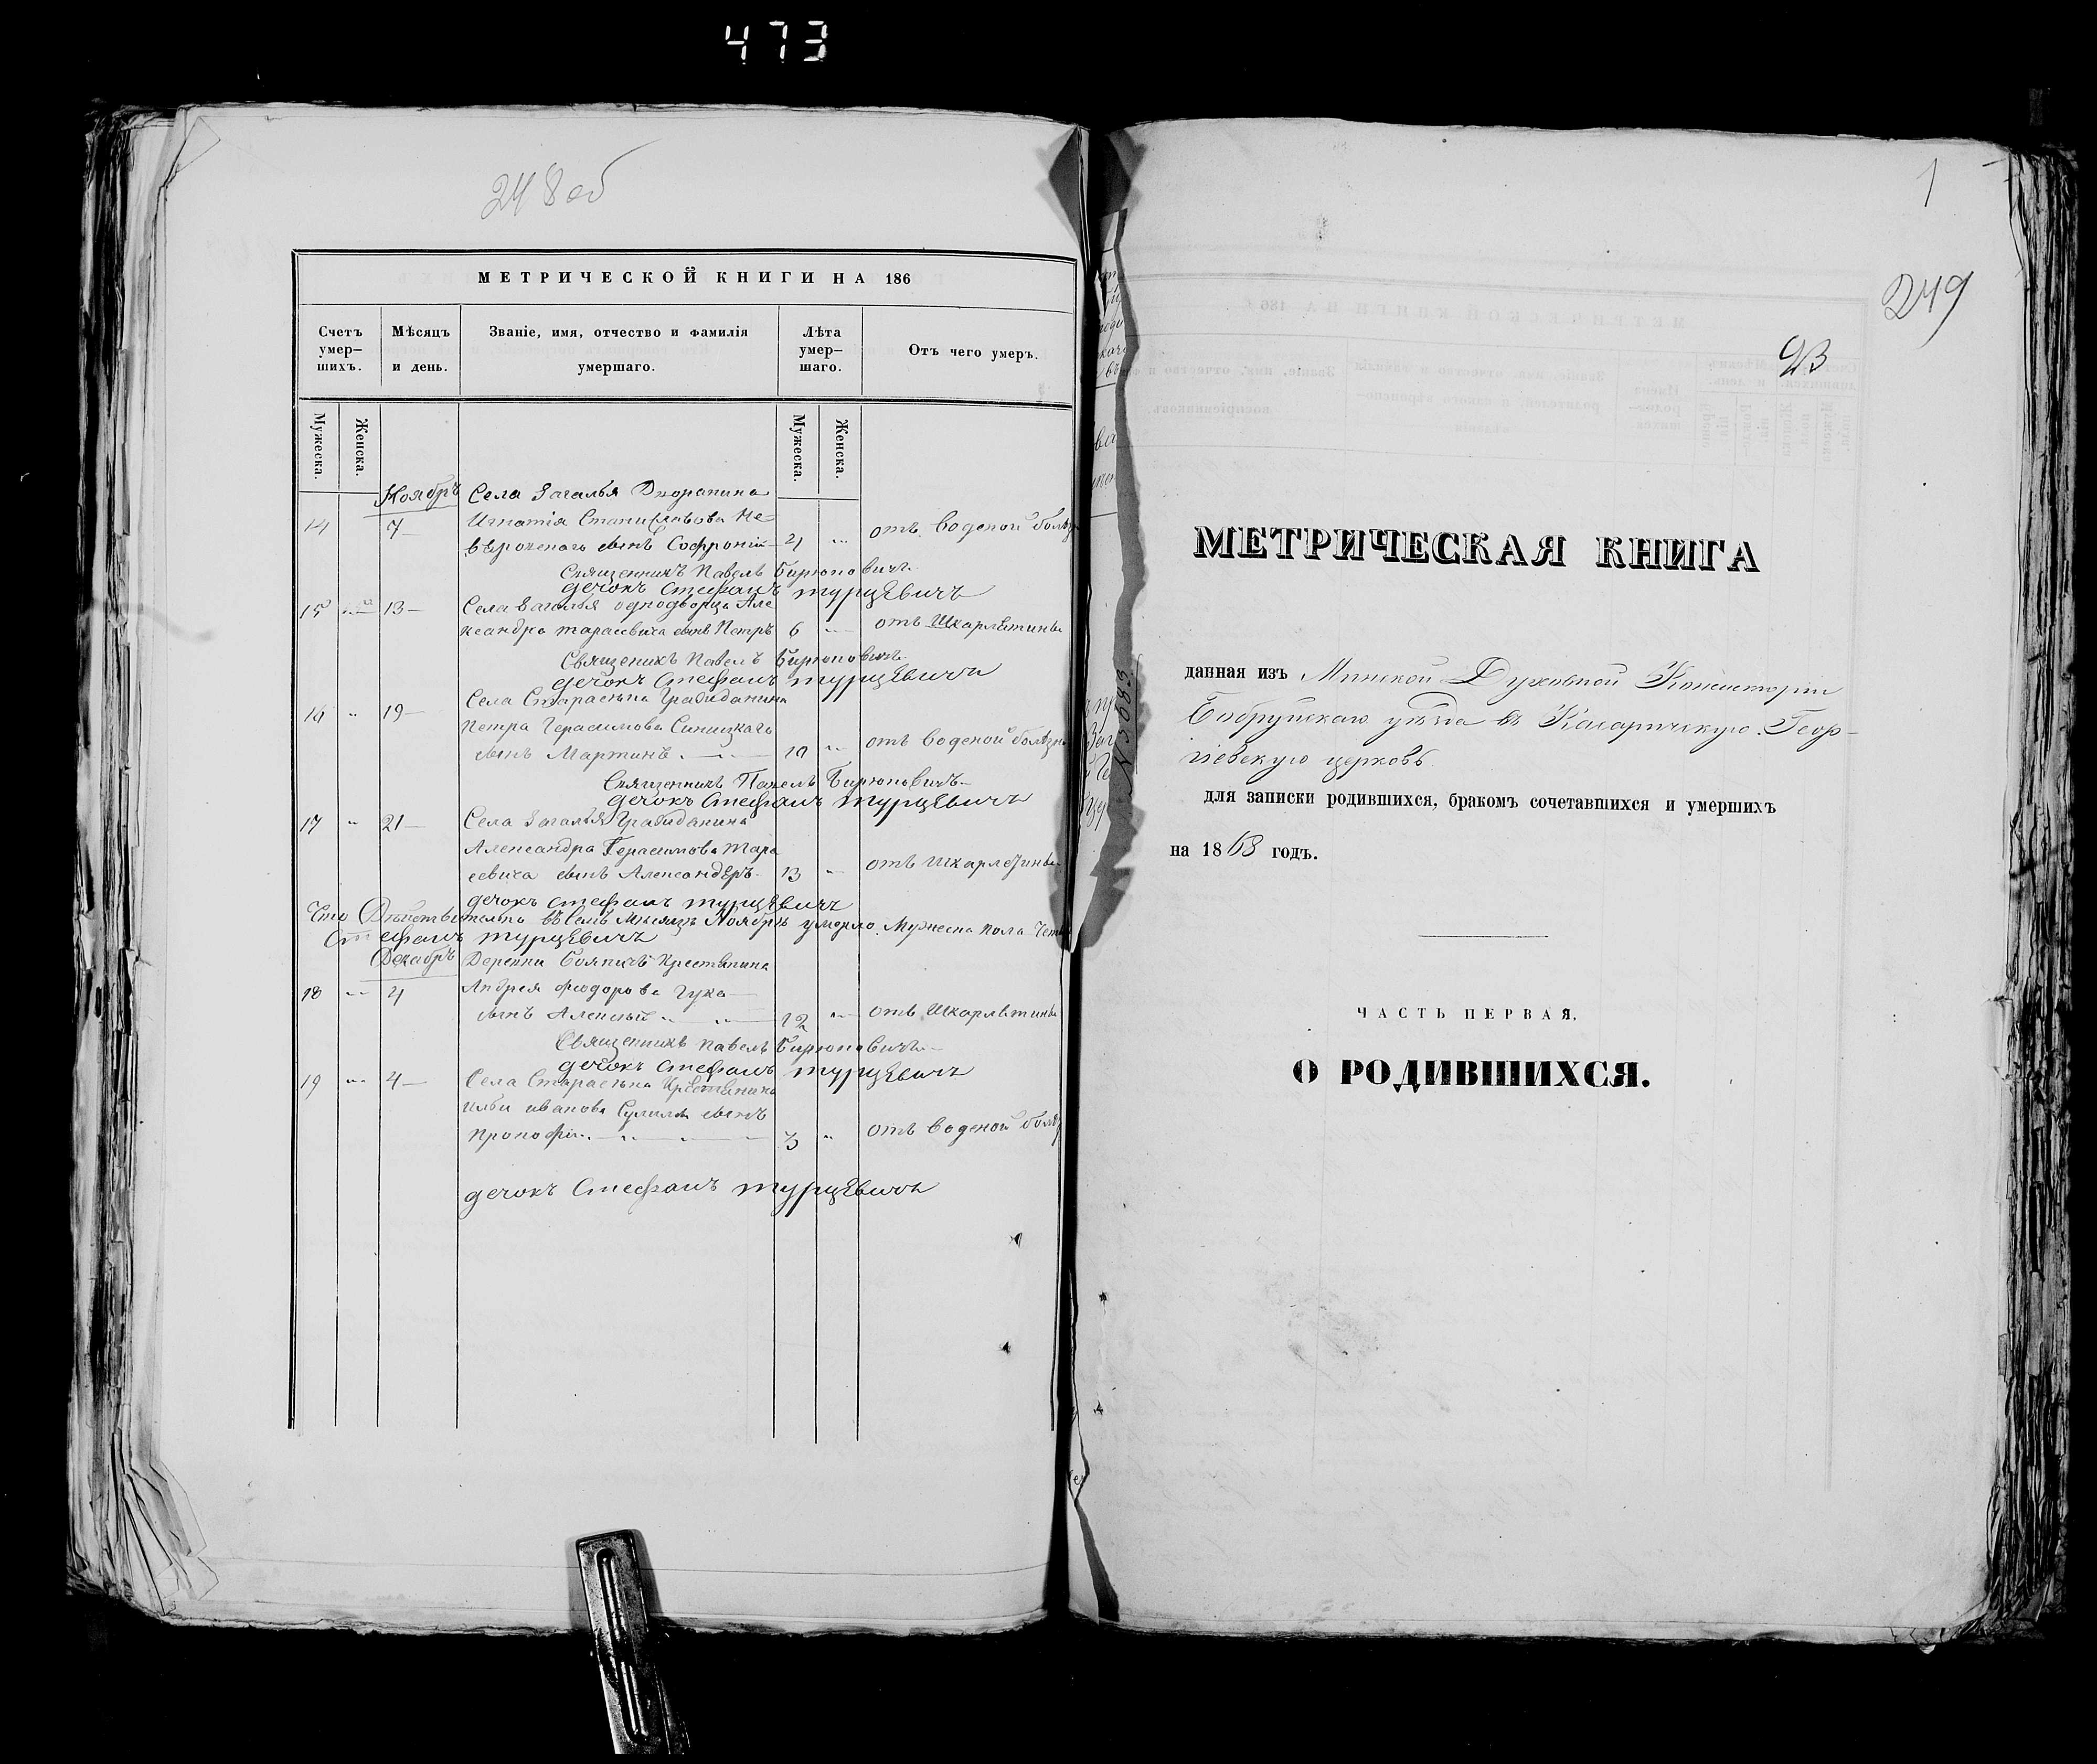 473
248 об
МЕТРИЧЕСКОЙ КНИГИ НА 186
Счетъ умер-шихъ.
Мѣсяцъ и день.
Званіе, имя, отчество и фамилія умершаго.
Лѣта умер-шаго.
Отъ чего умеръ.
Мужеска.
Женска.
Мужеска.
Женска.
Ноябрь Села Загалья Дворанина
14 7 Игнатія
сынъ Софроній 4 отъ воденой болѣз
Священникъ Павелъ Бирюповичъ
дечокъ Стефанъ турцЕвичъ
15 13 Села Загалья однодворца Але
ксандра тарасевича сынъ Петръ 6 отъ Шкарлетины
Священикъ Павелъ Бирюповичъ
дечокъ Стефанъ турцЕвичъ
Села
16 19
Петра Герасимова
сынъ Мартинъ 10 отъ воденой болѣзн
Священникъ Павелъ Бирюповичъ
дечокъ Стефанъ турцЕвичъ
17 21 Села Загалья
Александра Герасимова Тара
севича сынъ Александеръ 13 отъ шкарлетины
дечокъ стефанъ турцЕвичъ
Что Дѣйствительно въ Семъ Мѣсяцѣ Ноябрѣ умерло Мужеска пола Чет
Стефанъ турцЕвичъ
Декабрь Деревни крестянина
18 4 Андрея Феодорова Гука
сынъ Алексій 12 отъ Шкарлетины
Священникъ Павелъ Бирюповичъ
дечокъ Стефанъ турцЕвичъ
19 4 Села крестянина
Ильи иванова сынъ
Прокофій 3 отъ воденой болѣз
дечокъ Стефанъ турцЕвичъ
1
249
23
МЕТРИЧЕСКАЯ КНИГА
данная изъ Минской Духовной Консисторіи
Бобруйскаго уѣзда въ Касаричскую Геор-
гіевскую церковь
для записки родившихся, бракомъ сочетавшихся и умершихъ
на 1868 годъ.
ЧАСТЬ ПЕРВАЯ.
О РОДИВШИХСЯ.